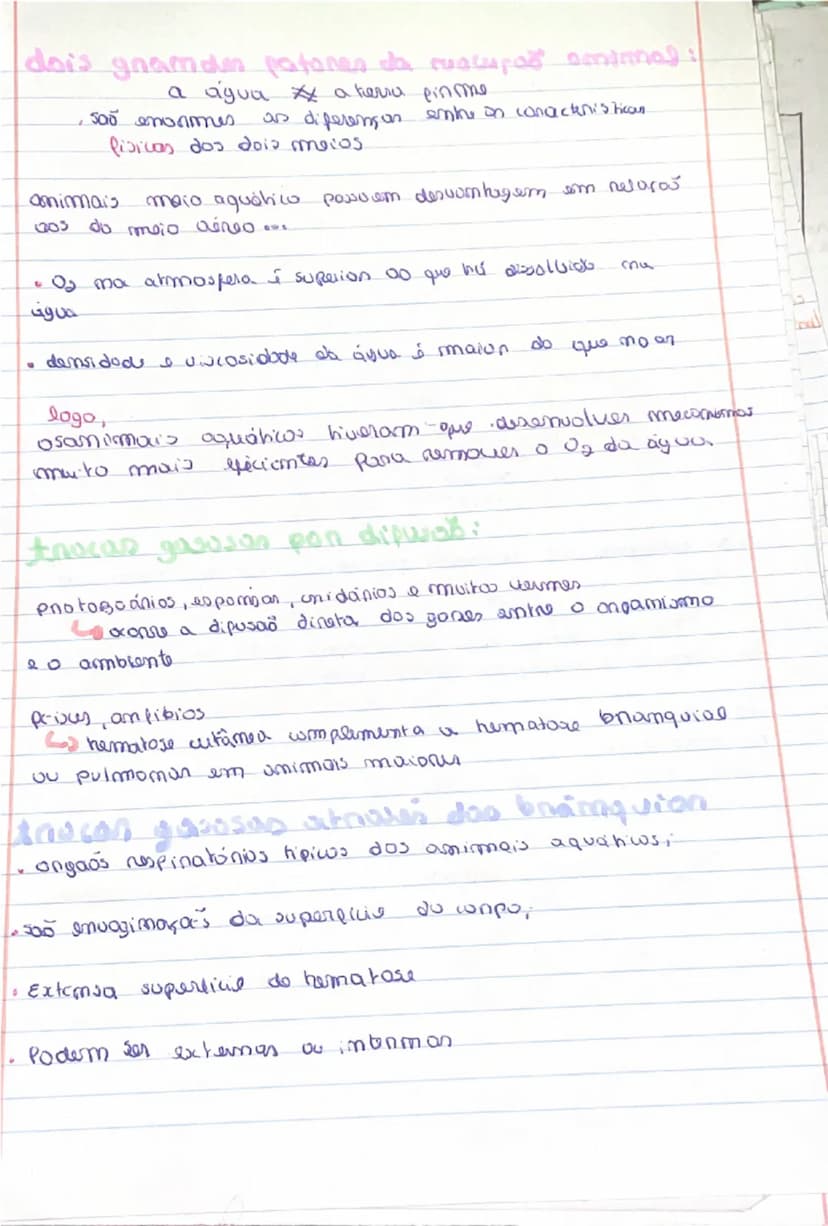 dois grandes fatores da evolução animal:
a água x a terra firme
. são enormes as diferenças entre as características
físicas dos dois meios
animais meio aquático possuem desvantagem em relação
aos do meio aéreo ...
• O₂ na atmosfera é superior ao que há dissolvido na
água
• densidade e viscosidade da água é maior do que no ar
logo,
os animais aquáticos tiveram que desenvolver mecanismos
muito mais eficientes para remover o O₂ da água.
trocas gasosas por difusão:
protozoários, esponjas, cnidários e muitos vermes
↳ ocorre a difusão direta dos gases entre o organismo
e o ambiente
peixes, anfíbios
↳ hematose cutânea complementa a hematose branquial
ou pulmonar em animais maiores
trocas gasosas através das brânquias
• orgãos respiratórios típicos dos animais aquáticos;
• são envaginações da superfície do corpo;
• Extensa superfície de hematose
• Podem ser externas ou internas